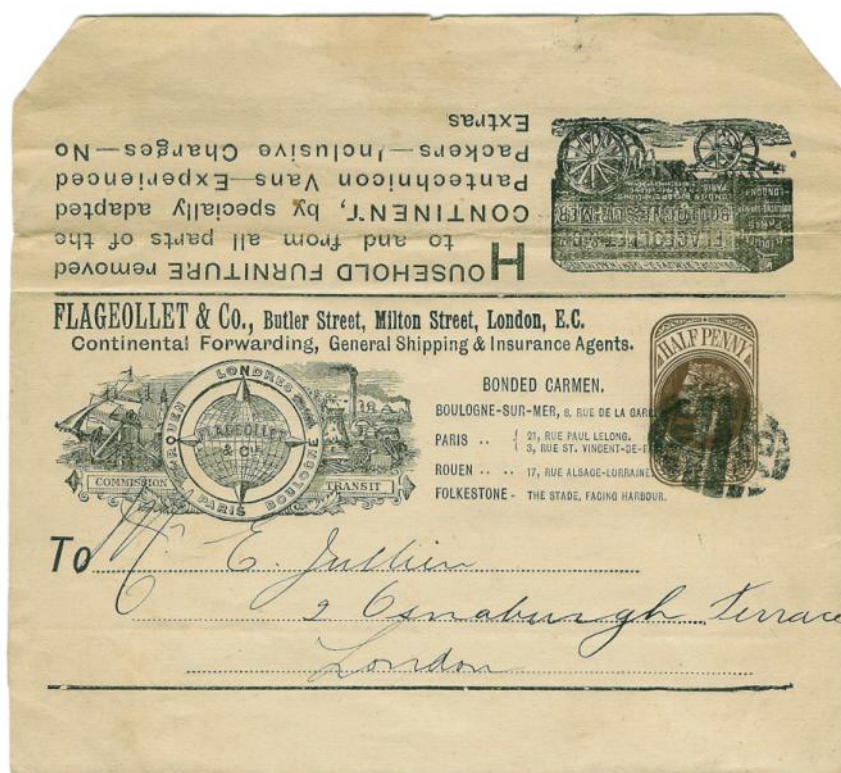 HOUSEHOLD FURNITURE removed
to and from all parts of the
CONTINENT, by specially adapted
Pantechnicon Vans—Experienced
Packers—Inclusive Charges—No
Extras
FLAGEOLLET & Co
BOULOGNE-SUR-MER
FLAGEOLLET & Co., Butler Street, Milton Street, London, E.C.
Continental Forwarding, General Shipping & Insurance Agents.
HALF PENNY
LONDRES
ROUEN
BOULOGNE
PARIS
FLAGEOLLET
& Cie
COMMISSION
TRANSIT
BONDED CARMEN.
BOULOGNE-SUR-MER, 8, RUE DE LA GARE
PARIS .. { 21, RUE PAUL LELONG.
{ 3, RUE ST. VINCENT-DE-P
ROUEN .. .. 17, RUE ALSACE-LORRAINE
FOLKESTONE - THE STADE, FACING HARBOUR.
To Mr E. Jullien
2 Osnaburgh Terrace
London